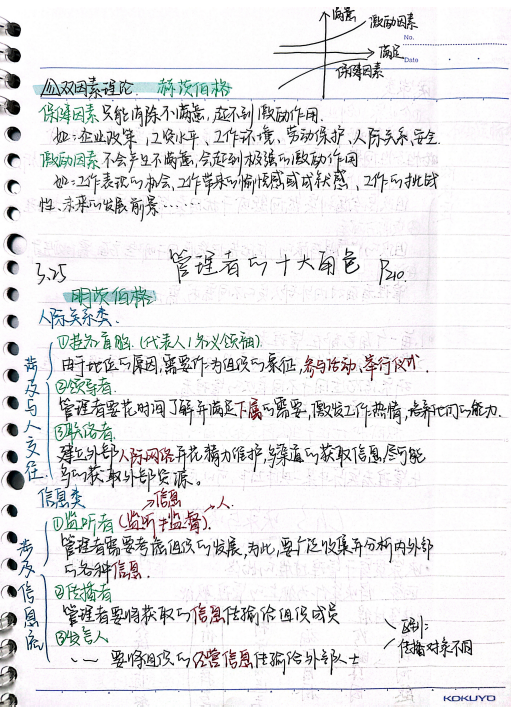 满意
激励因素
No.
满足
Date
保障因素
(三)双因素理论 赫茨伯格
保障因素只能消除不满意,起不到激励作用.
如:企业政策,工资水平、工作环境、劳动保护,人际关系,安全.
激励因素不会产生不满意,会起到极强的激励作用
如:工作表现的机会,工作带来的愉悦感或成就感、工作的挑战
性、未来的发展前景……
3.25 管理者的十大角色 P20.
明茨伯格
人际关系类.
涉及与人交往
①挂名首脑.(代表人/名义领袖)
由于地位的原因,需要作为组织的象征,参与活动、举行仪式.
②领导者.
管理者要花时间了解并满足下属的需要,激发工作热情,培养他们的能力.
③联络者.
建立外部人际网络并花精力维护,多渠道的获取信息,尽可能
多的获取外部资源。
信息类
→信息
涉及信息流
①监听者(监听≠监督).→人.
管理者需要考虑组织的发展,为此,要广泛收集并分析内外部
的各种信息.
②传播者
管理者要将获取的信息传输给组织成员
③发言人
~~ 要将组织的经营信息传输给外部人士
区别:
传播对象不同
KOKUYO